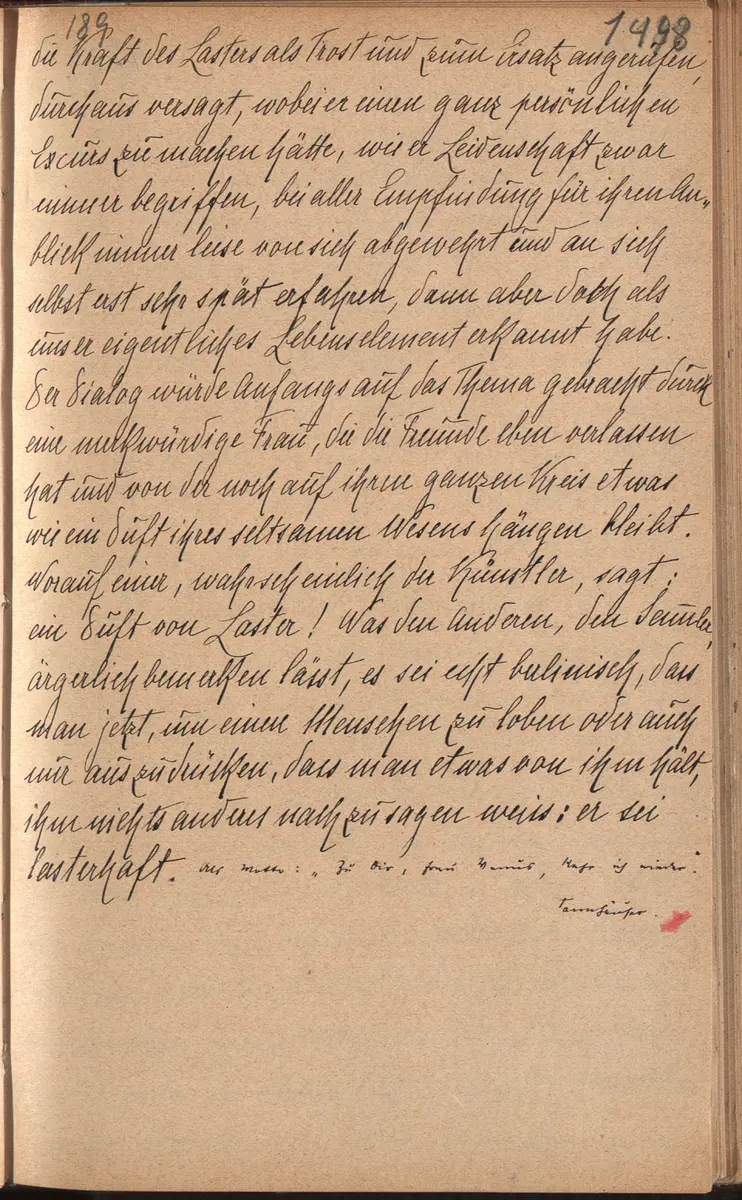 189
1498
die Kraft des Lasters als Trost und zum Ersatz angerufen,
durchaus versagt, wobei er einen ganz persönlichen
Excurs zu machen hätte, wie er Leidenschaft zwar
immer begriffen, bei aller Empfindung für ihren An„
blick immer leise von sich abgewehrt und an sich
selbst erst sehr spät erfahren, dann aber doch als
unser eigentliches Lebenselement erkannt habe.
Der Dialog würde Anfangs auf das Thema gebracht durch
eine merkwürdige Frau, die die Freunde eben verlassen
hat und von der noch auf ihrem ganzen Kreis etwas
wie ein Duft ihres seltsamen Wesens hängen bleibt.
Worauf einer, wahrscheinlich der Künstler, sagt:
ein Duft von Laster! Was den Anderen, den Semmler,
ärgerlich bemerken lässt, es sei echt berlinisch, dass
man jetzt, um einen Menschen zu loben oder auch
nur auszudrücken, dass man etwas von ihm hält,
ihm nichts anderes nachzusagen weiss: er sei
lasterhaft. Als Motto: „Zu Dir, Frau Venus, kehr ich wieder".
Tannhäuser.